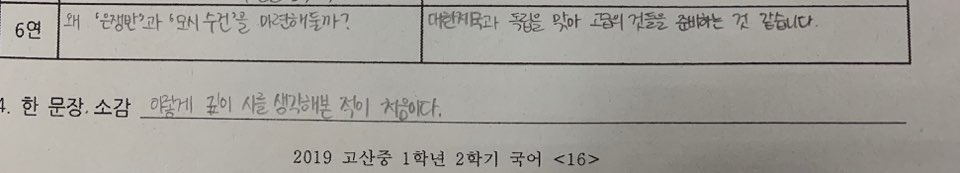 6연 왜 '은쟁반'과 '모시 수건'을 마련해둘까? 대한제국과 독립을 맞아 고급의 것들을 준비하는 것 같습니다.
4. 한 문장. 소감 이렇게 깊이 시를 생각해본 적이 처음이다.
2019 고산중 1학년 2학기 국어 <16>